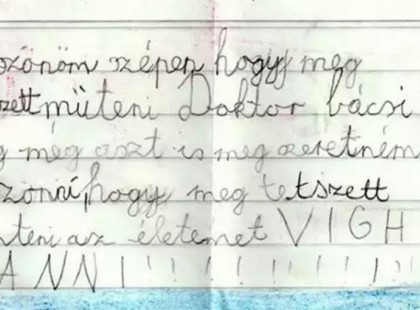 szönöm szépen hogy meg
zett műteni Doktor bácsi
g még aszt is meg szeretném
szönni, hogy meg te tszett
nteni az életemet VIGH
ANNI!!!!!!!!!!!